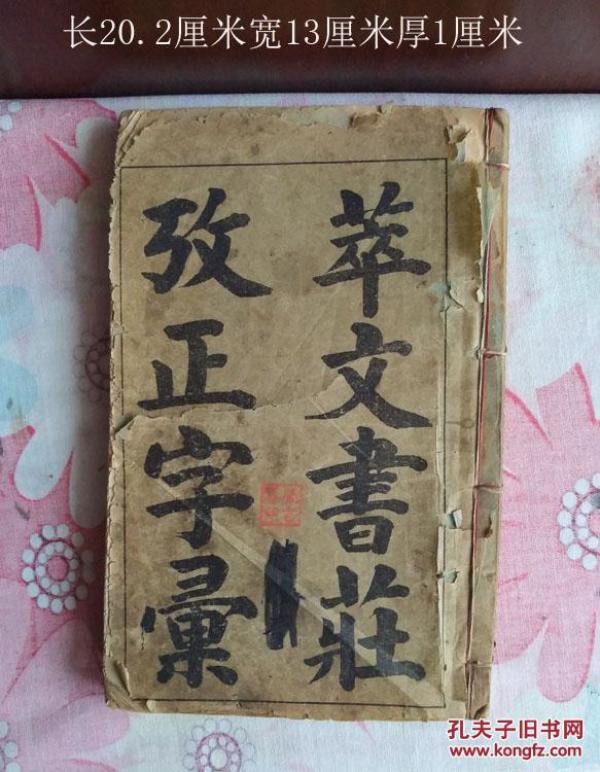 长20.2厘米宽13厘米厚1厘米
萃文書莊
攷正字彙
孔夫子旧书网
www.kongfz.com